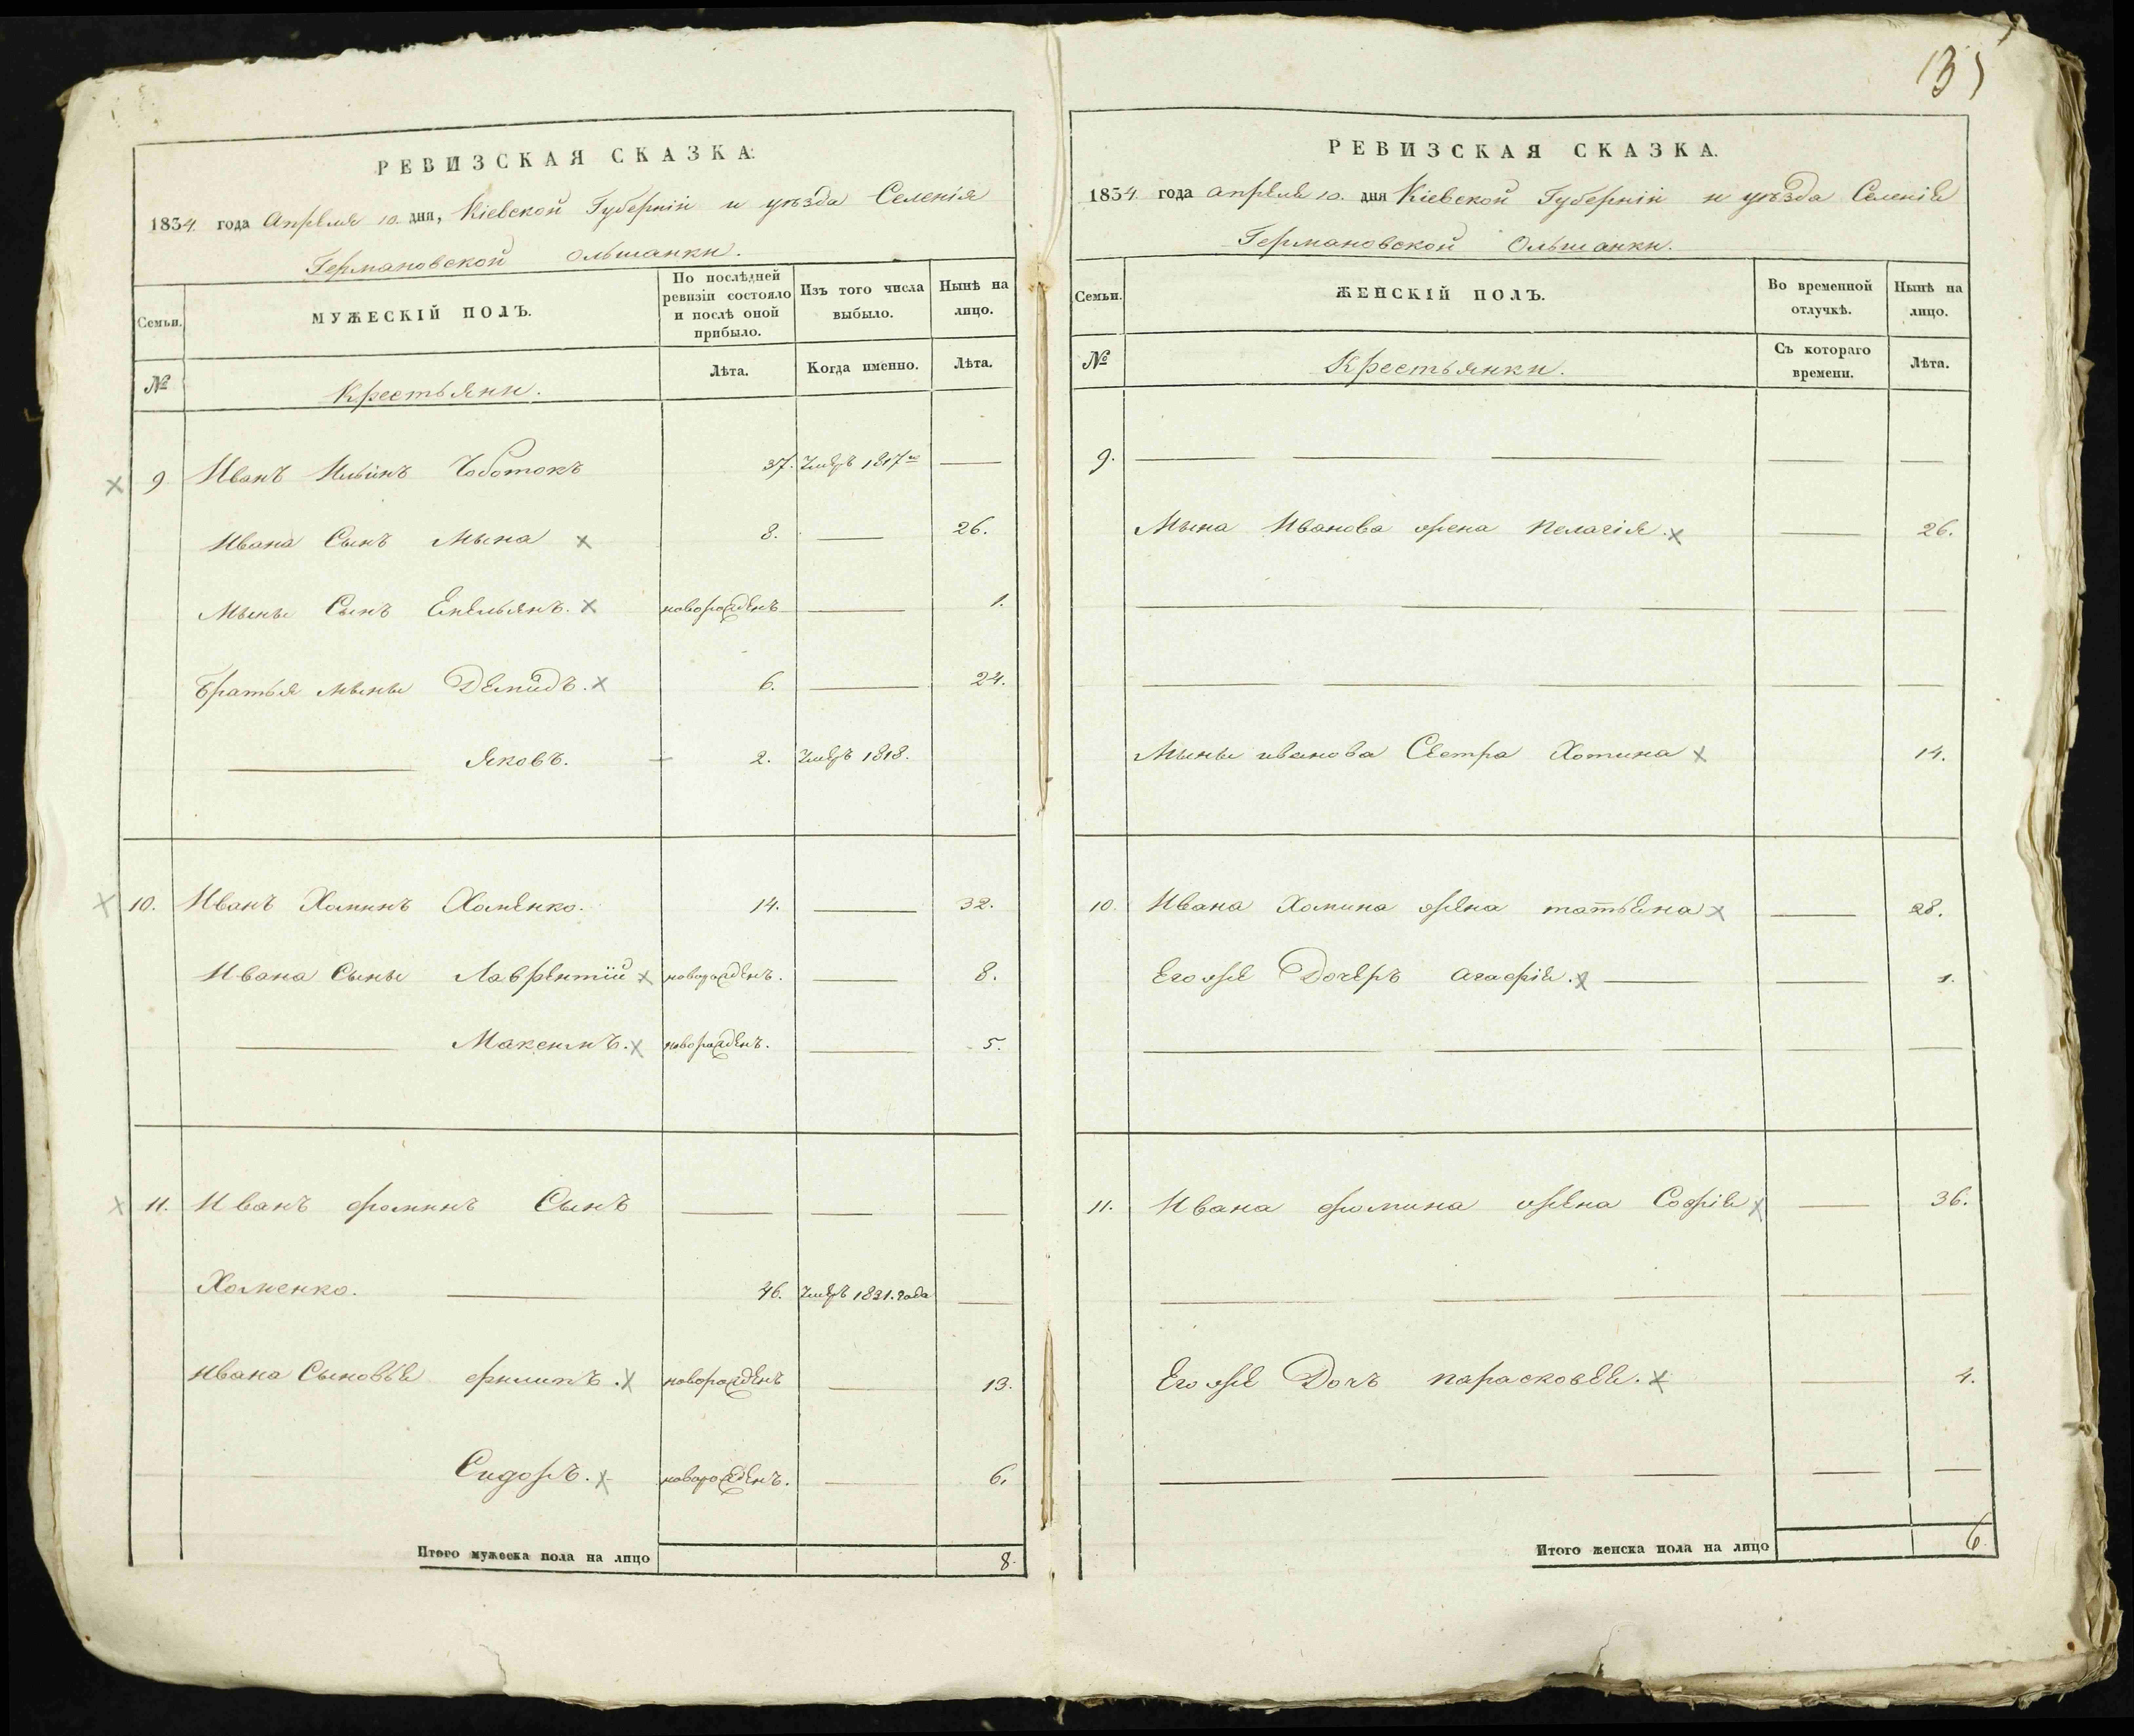 135
РЕВИЗСКАЯ СКАЗКА.
1834. года Апреля 10. дня, Кіевской Губерніи и уѣзда Селенія
Германовской Ольшанки.
Семьи.
МУЖЕСКІЙ ПОЛЪ.
По послѣдней ревизіи состояло и послѣ оной прибыло.
Изъ того числа выбыло.
Нынѣ на лицо.
№
Крестьяни.
Лѣта.
Когда именно.
Лѣта.
9. Иванъ Ильинъ Чоботокъ 37. Умеръ 1817го
Ивана Сынъ Мына 8. 26.
Мыны Сынъ Емельянъ. новорожденъ 1.
Братья мыны Демидъ. 6. 24.
Яковъ. 2. Умеръ 1818.
10. Иванъ Хоминъ Хоменко. 14. 32.
Ивана Сыны Лаврентій новорожденъ. 8.
Максимъ. новорожденъ. 5.
11. Иванъ Фоминъ Сынъ
Хоменко. 46. Умеръ 1821. года
Ивана Сыновья Филипъ. новорожденъ 13.
Сидоръ. новорожденъ. 6.
Итого мужеска пола на лицо 8.
РЕВИЗСКАЯ СКАЗКА.
1834. года апреля 10. дня Кіевской Губерніи и уѣзда Селенія
Германовской Ольшанки.
Семьи.
ЖЕНСКІЙ ПОЛЪ.
Во временной отлучкѣ.
Нынѣ на лицо.
№
Крестьянки.
Съ котораго времени.
Лѣта.
9.
Мына Иванова жена Пелагія. 26.
Мыны иванова Сестра Хотина 14.
10. Ивана Хомина жена татьяна 28.
Его же Дочеръ агафія. 1.
11. Ивана Фомина жена Софія 36.
Его же Дочъ парасковея. 4.
Итого женска пола на лицо 6.